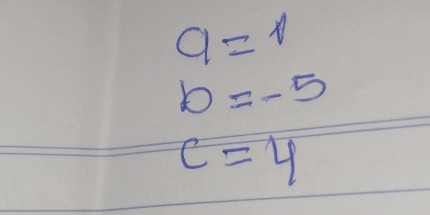 a = 1
b = - 5
c = 4